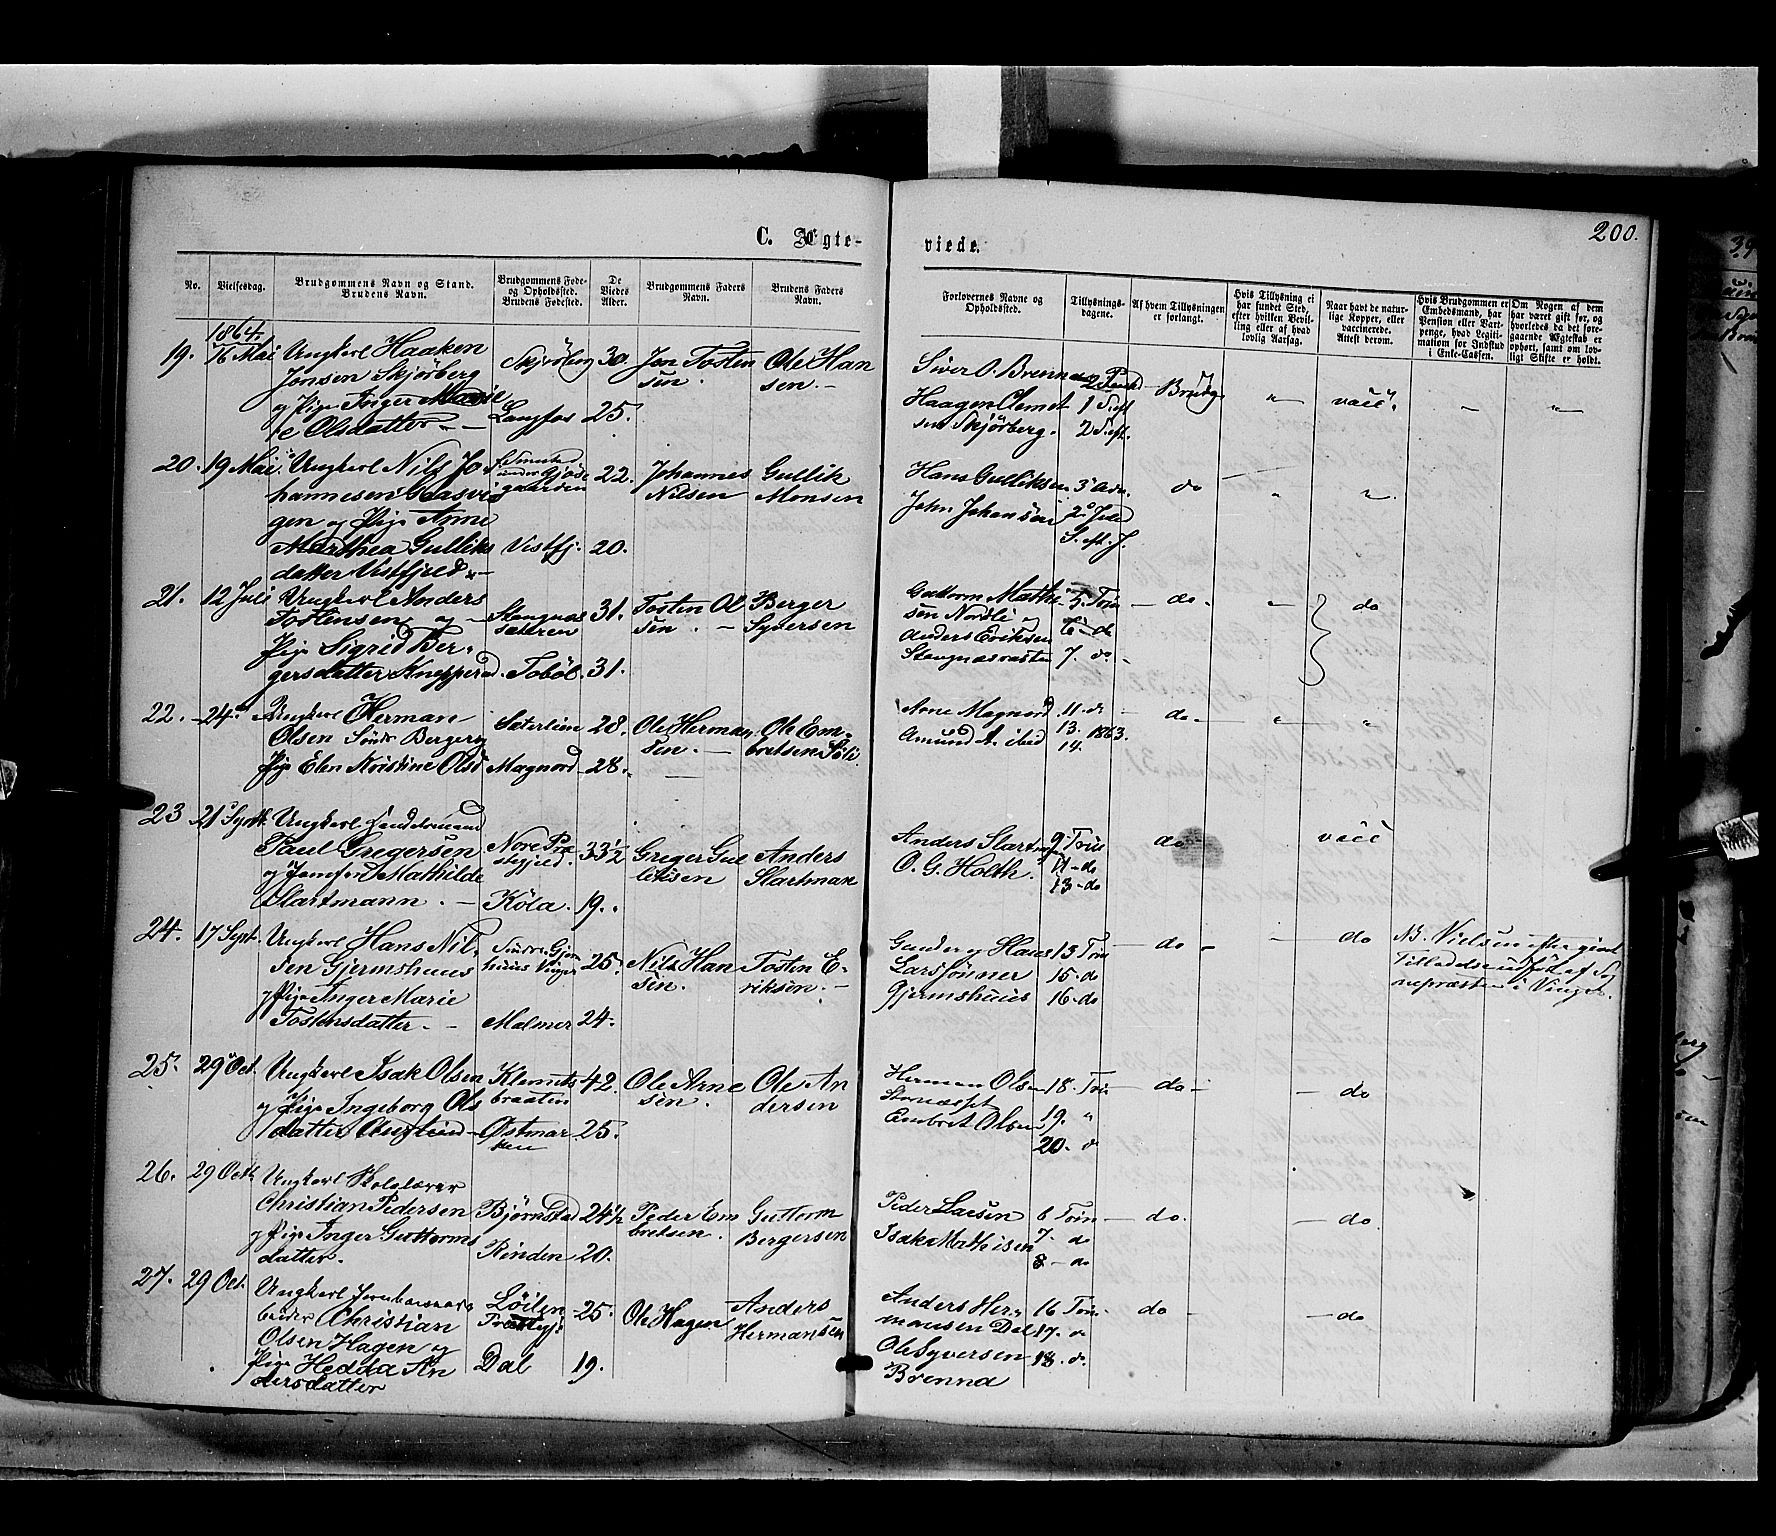 C. Ægte-
viede.
200.
No.
Vielsesdag.
Brudgommens Navn og Stand.
Brudens Navn.
Brudgommens Føde-
og Opholdssted.
Brudens Fødested.
De
Viedes
Alder.
Brudgommens Faders
Navn.
Brudens Faders
Navn.
Forlovernes Navne og
Opholdssted.
Tillysnings-
dagene.
Af hvem Tillysningen
er forlangt.
Hvis Tillysning ei
har fundet Sted,
efter hvilken Bevil-
ling eller af hvad
lovlig Aarsag.
Naar havt de natur-
lige Kopper, eller
vaccinerede.
Attest derom.
Hvis Brudgommen er
Embedsmand, har
Pension eller Vart-
penge, hvad Legiti-
mation for Indskud
i Enke-Cassen.
Om Nogen af dem
har været gift før, og
hvorledes da det fore-
gaaende Ægteskab er
ophørt, samt om lov-
ligt Skifte er holdt.
1864.
19. 16 Mai Ungkarl Haaken
Jonsen Skjørberg
og Pige Inger Marie
Olsdatter
Skjørberg 30. Jon Tosten
sen. Ole Han
sen.
Langfos 25.
Siver O. Brenna
Haagen Clemet
sen Skjørberg.
1 S. eft.
2 S. eft.
Brudg. vacc.
20. 19 Mai Ungkarl Nils Jo
hannesen Gaasvig
gen og Pige Anne
Marthea Gulliks
datter Vestfjeld
under Gjøs
gaarden 22. Johannes
Nilsen
Gullik
Monsen
Vestfj. 20.
Hans Gulliksen 3 Adv.
John Johansen 2 Juled
S. eft. J.
do
21. 12 Juli Ungkarl Anders
Tostensen og
Pige Sigrid Ber-
gersdatter Knapperud
Stangnæs
sæteren 31. Tosten Ol
sen. Berger
Syversen
Tobøl. 31.
Guttorm Mathi
sen Nordli og
Anders Eriksen
Stangnæssæter
5. Trin
6 - do
7. do
do do
22. 24 Ungkarl Herman
Olsen Søndr Berger og
Pige Elen Kristine Olsd
Sæterlien 28. Ole Herman
sen. Ole Em-
bretsen Sølie
Magnord 28.
Arne Magnord
Amund A. ibid
11. do
13. 1863.
14.
do
23 21 Septb. Ungkarl Handelsmand
Paul Gregersen
og Jomfru Mathilde
Slartmann.
Nore Præ
stegjeld. 33½ Greger Gul
leksen Anders
Slartman
Køla. 19.
Anders Slartman
O. G. Holth.
9. Trin
11 - do
13 - do
do vacc
24. 17 Sept. Ungkarl Hans Nil-
sen Gjermshuus
og Pige Inger Marie
Tostensdatter.
Søndre Gjerms
huus Vinger 25. Nils Han
sen. Tosten E-
riksen.
Malmer 24.
Gunder og Hans
Larssønner
Gjermshuus
13 Trin
15. do
16. do
do do
NB. Vielsen efter given
Tilladelse udført af So
gnepræsten i Vinger.
25. 29 Oct. Ungkarl Isak Olsen
og Pige Ingeborg Ols
datter
Klemets
braaten 42. Ole Arne
sen. Ole An
dersen
Østmar
ken 25.
Herman Olsen
Stornæsset
Embret Olsen
18. Trin
19. "
20. do
do do
26. 29 Octb Ungkarl Skolelærer
Christian Pedersen
og Pige Inger Guttorms
datter.
Bjørnstad 24½ Peder Em
bretsen. Guttorm
Bergersen
Rinden 20.
Peder Larsen
Isak Mathisen
6 Trin
7. do
8 - do
do. do.
27. 29 Oct. Ungkarl Jernbanear
beider Christian
Olsen Hagen og
Pige Hedda An
dersdatter
Løiten
Præstegj. 25. Ole Hagen Anders
Hermansen
Dal 19.
Anders Her-
mansen Dal
Ole Syversen
Brenna
16 Trin
17. do
18. do.
do do